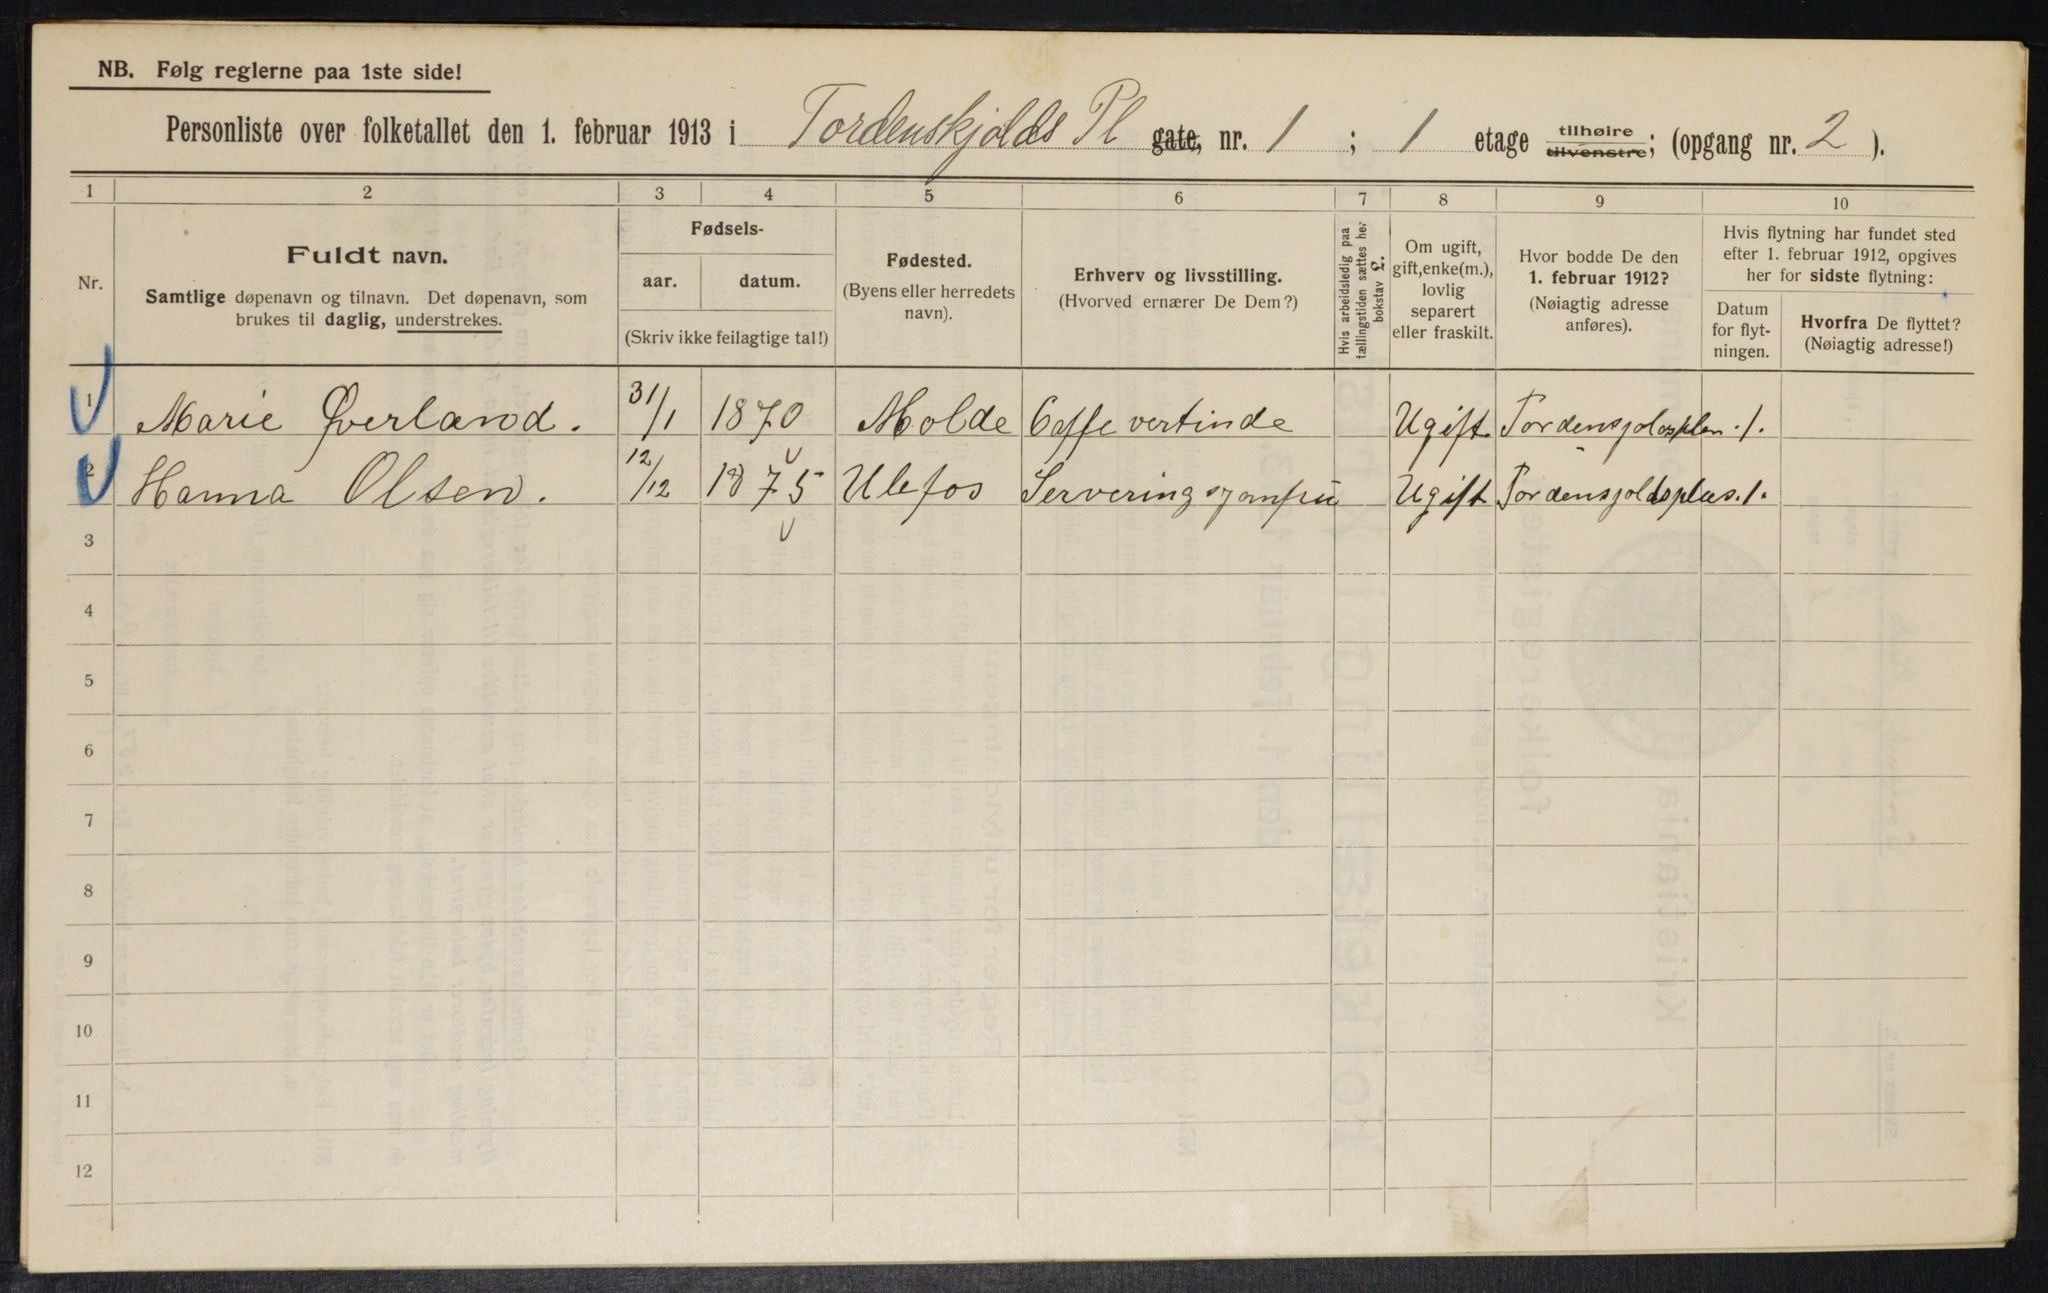 NB. Følg reglerne paa 1ste side!
Personliste over folketallet den 1. februar 1913 i Tordenskjolds Pl gate, nr. 1 ; 1 etage tilhøire tilvenstre; (opgang nr. 2 ).
1 2 3 4 5 6 7 8 9 10
Nr.
Fuldt navn.
Samtlige døpenavn og tilnavn. Det døpenavn, som
brukes til daglig, understrekes.
Fødsels-
aar. datum.
(Skriv ikke feilagtige tal!)
Fødested.
(Byens eller herredets
navn).
Erhverv og livsstilling.
(Hvorved ernærer De Dem?)
Hvis arbeidsledig paa
tællingstiden sættes her
bokstav L.
Om ugift,
gift, enke(m.),
lovlig
separert
eller fraskilt.
Hvor bodde De den
1. februar 1912?
(Nøiagtig adresse
anføres).
Hvis flytning har fundet sted
efter 1. februar 1912, opgives
her for sidste flytning:
Datum
for flyt-
ningen.
Hvorfra De flyttet?
(Nøiagtig adresse!)
1 Marie Øverland. 31/1 1870 Molde Caffe vertinde Ugift Tordensjoldsplen. 1.
2 Hanna Olsen. 12/12 1875 Ulefos Serveringsjomfru Ugift Tordensjoldsplus. 1.
3
4
5
6
7
8
9
10
11
12